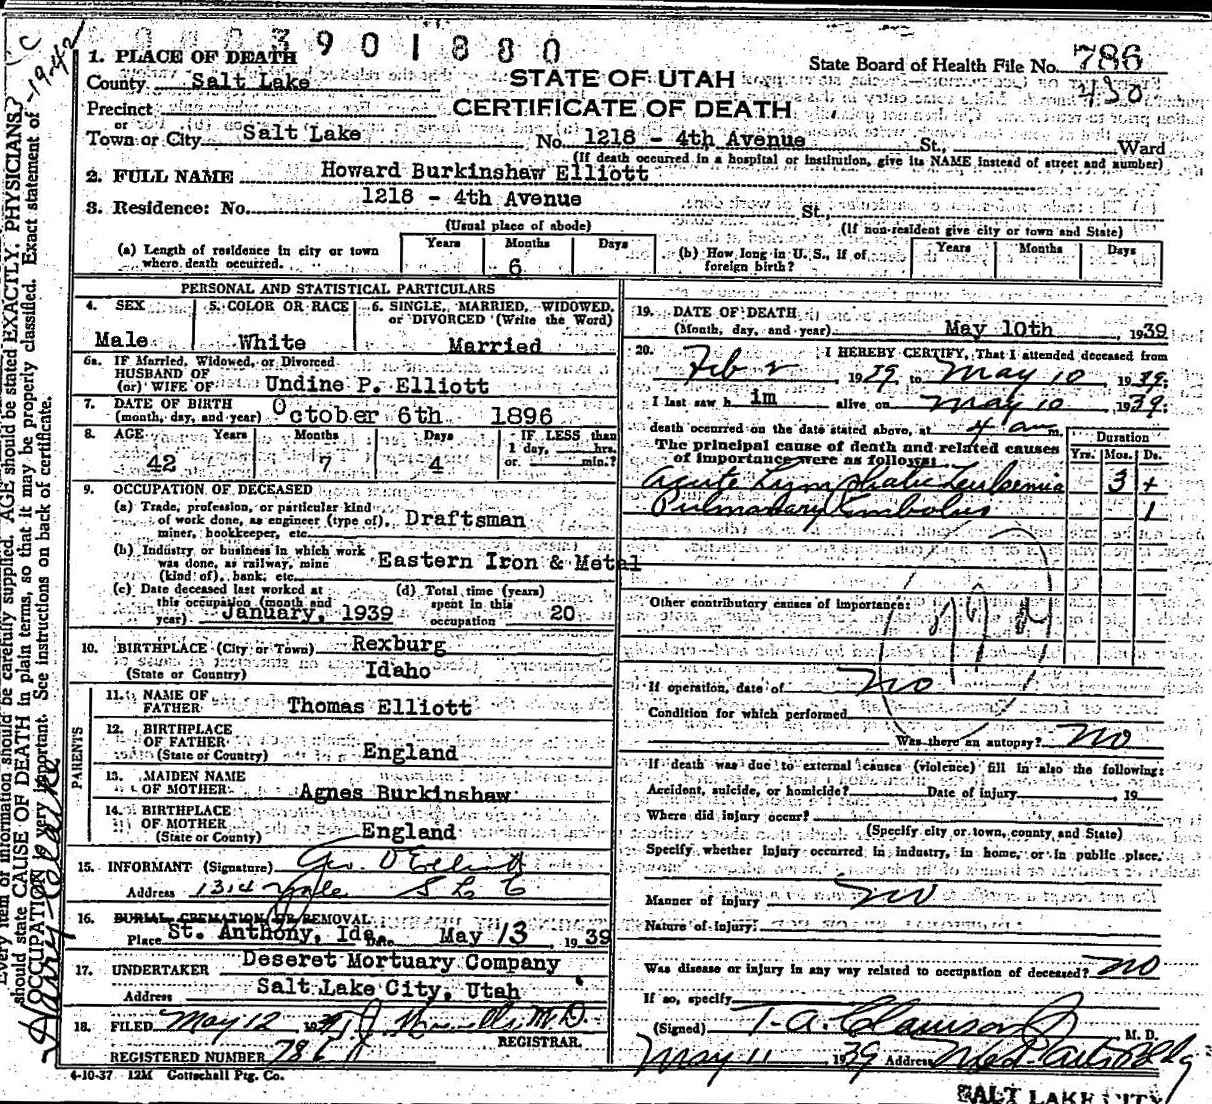 3901880
1. PLACE OF DEATH
County Salt Lake
Precinct
Town or City Salt Lake
STATE OF UTAH
CERTIFICATE OF DEATH
State Board of Health File No. 786
430
No. 1218 - 4th Avenue St., Ward
(If death occurred in a hospital or institution, give its NAME instead of street and number)
2. FULL NAME Howard Burkinshaw Elliott
3. Residence: No. 1218 - 4th Avenue St.,
(Usual place of abode) (If non-resident give city or town and State)
(a) Length of residence in city or town where death occurred. Years Months 6 Days
(b) How long in U. S., if of foreign birth? Years Months Days
PERSONAL AND STATISTICAL PARTICULARS
4. SEX Male
5. COLOR OR RACE White
6. SINGLE, MARRIED, WIDOWED, or DIVORCED (Write the Word) Married
6a. IF Married, Widowed, or Divorced
HUSBAND OF
(or) WIFE OF Undine P. Elliott
7. DATE OF BIRTH
(month, day, and year) October 6th 1896
8. AGE Years 42 Months 7 Days 4 IF LESS than 1 day, hrs. or min.?
9. OCCUPATION OF DECEASED
(a) Trade, profession, or particular kind of work done, as engineer (type of), miner, bookkeeper, etc. Draftsman
(b) Industry or business in which work was done, as railway, mine (kind of), bank, etc. Eastern Iron & Metal
(c) Date deceased last worked at this occupation (month and year) January, 1939
(d) Total time (years) spent in this occupation 20
10. BIRTHPLACE (City or Town) Rexburg
(State or Country) Idaho
PARENTS
11. NAME OF FATHER Thomas Elliott
12. BIRTHPLACE OF FATHER
(State or Country) England
13. MAIDEN NAME OF MOTHER Agnes Burkinshaw
14. BIRTHPLACE OF MOTHER
(State or County) England
15. INFORMANT (Signature) Geo. D Elliott
Address 1314 Yale S L C
16. BURIAL CREMATION OR REMOVAL
Place St. Anthony, Ida. Date May 13, 1939
17. UNDERTAKER Deseret Mortuary Company
Address Salt Lake City, Utah
18. FILED May 12 1939 M.D.
REGISTRAR.
REGISTERED NUMBER 786
4-10-37 12M Gottschall Ptg. Co.
19. DATE OF DEATH
(Month, day, and year) May 10th, 1939
20. I HEREBY CERTIFY, That I attended deceased from
Feb 2 1939 to May 10, 1939;
I last saw him alive on May 10 1939;
death occurred on the date stated above, at 4 am m.
The principal cause of death and related causes of importance were as follows:
Duration
Yrs. Mos. Ds.
Acute Lymphatic Leukemia 3 +
Pulmonary Embolus 1
Other contributory causes of importance:
If operation, date of no
Condition for which performed
Was there an autopsy? no
If death was due to external causes (violence) fill in also the following:
Accident, suicide, or homicide? Date of injury, 19
Where did injury occur?
(Specify city or town, county and State)
Specify whether injury occurred in industry, in home, or in public place.
Manner of injury no
Nature of injury
Was disease or injury in any way related to occupation of deceased? no
If so, specify
(Signed) T. A. Clawson Jr M. D.
May 11, 1939 Address Med. Arts Bldg
SALT LAKE CITY
Every item of information should be carefully supplied. AGE should be stated EXACTLY. PHYSICIANS
should state CAUSE OF DEATH in plain terms, so that it may be properly classified. Exact statement of
OCCUPATION is very important. See instructions on back of certificate.